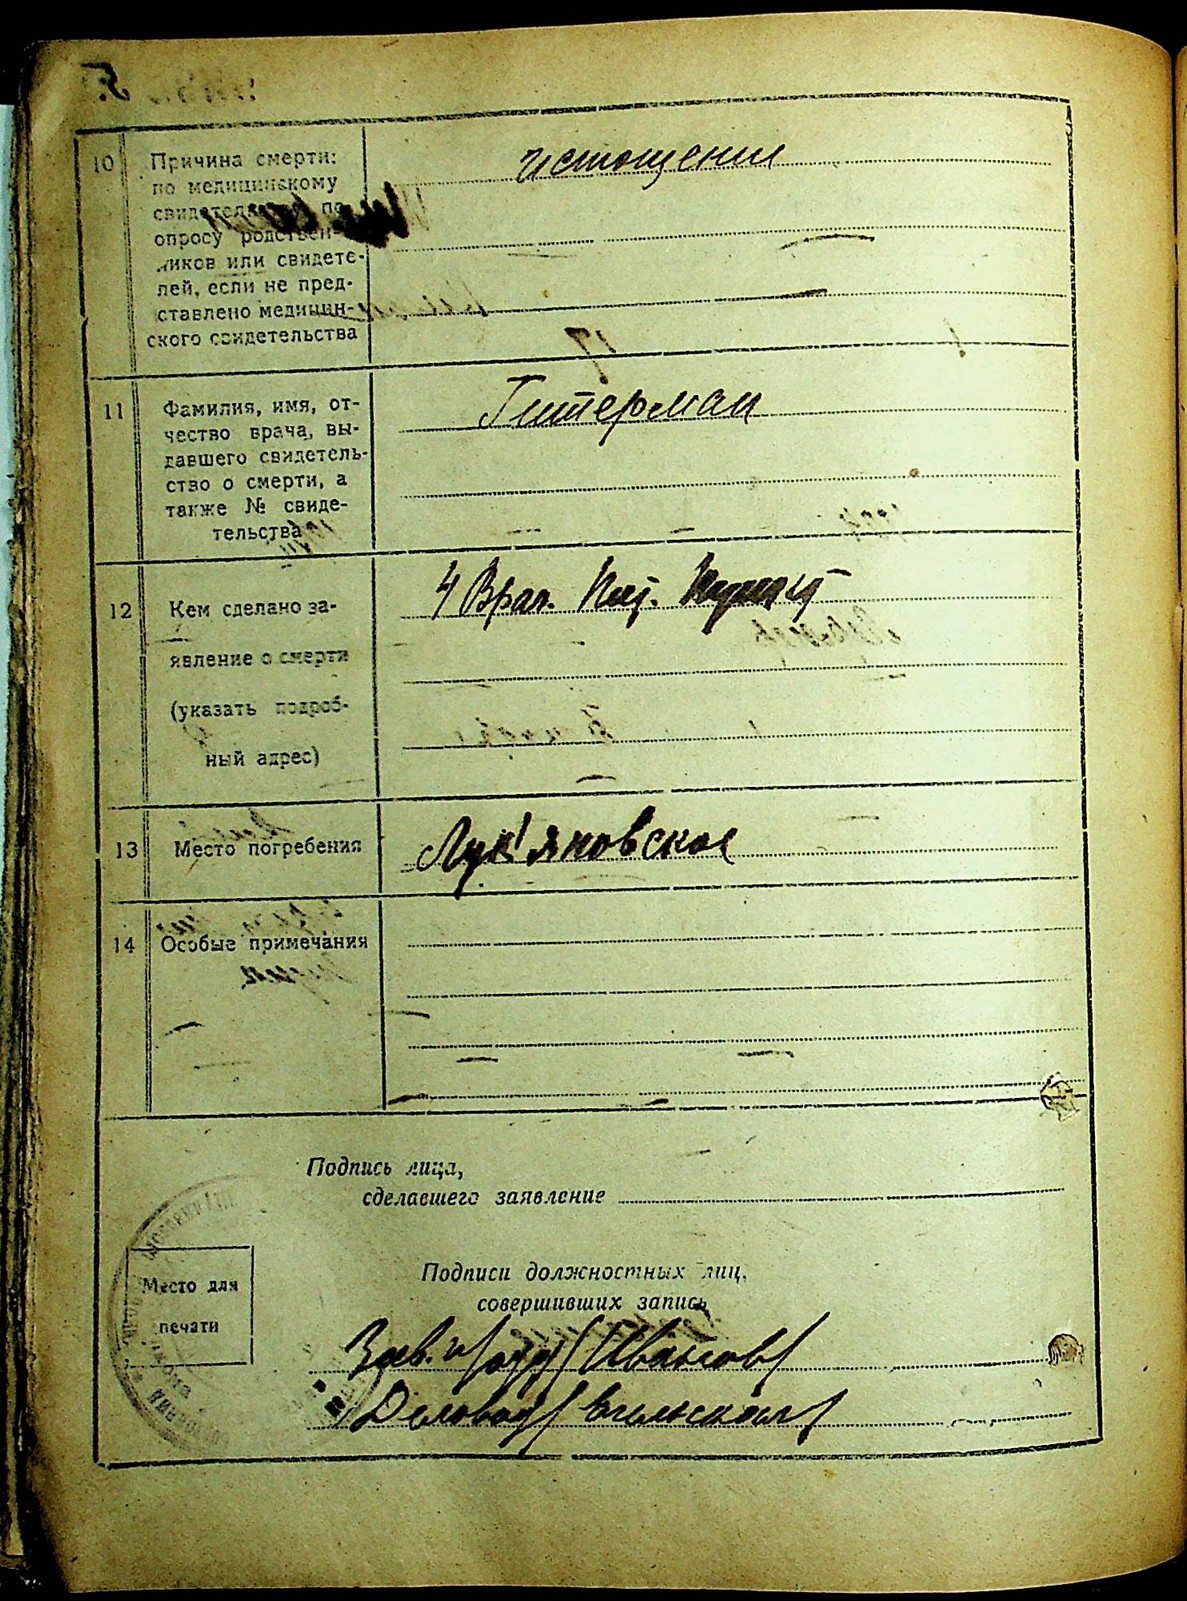 10 Причина смерти: истощение
по медицинскому
свидетельству по
опросу родствен-
ников или свидете-
лей, если не пред-
ставлено медицин-
ского свидетельства
11 Фамилия, имя, от- Гитерман
чество врача, вы-
давшего свидетель-
ство о смерти, а
также № свиде-
тельства
12 Кем сделано за- 4 Врач. Пункт
явление о смерти
(указать подроб-
ный адрес)
13 Место погребения Лук'яновское
14 Особые примечания
Подпись лица,
сделавшего заявление
Подписи должностных лиц,
совершивших запись
Место для
печати
Зав. /Иванов/
Деловод /